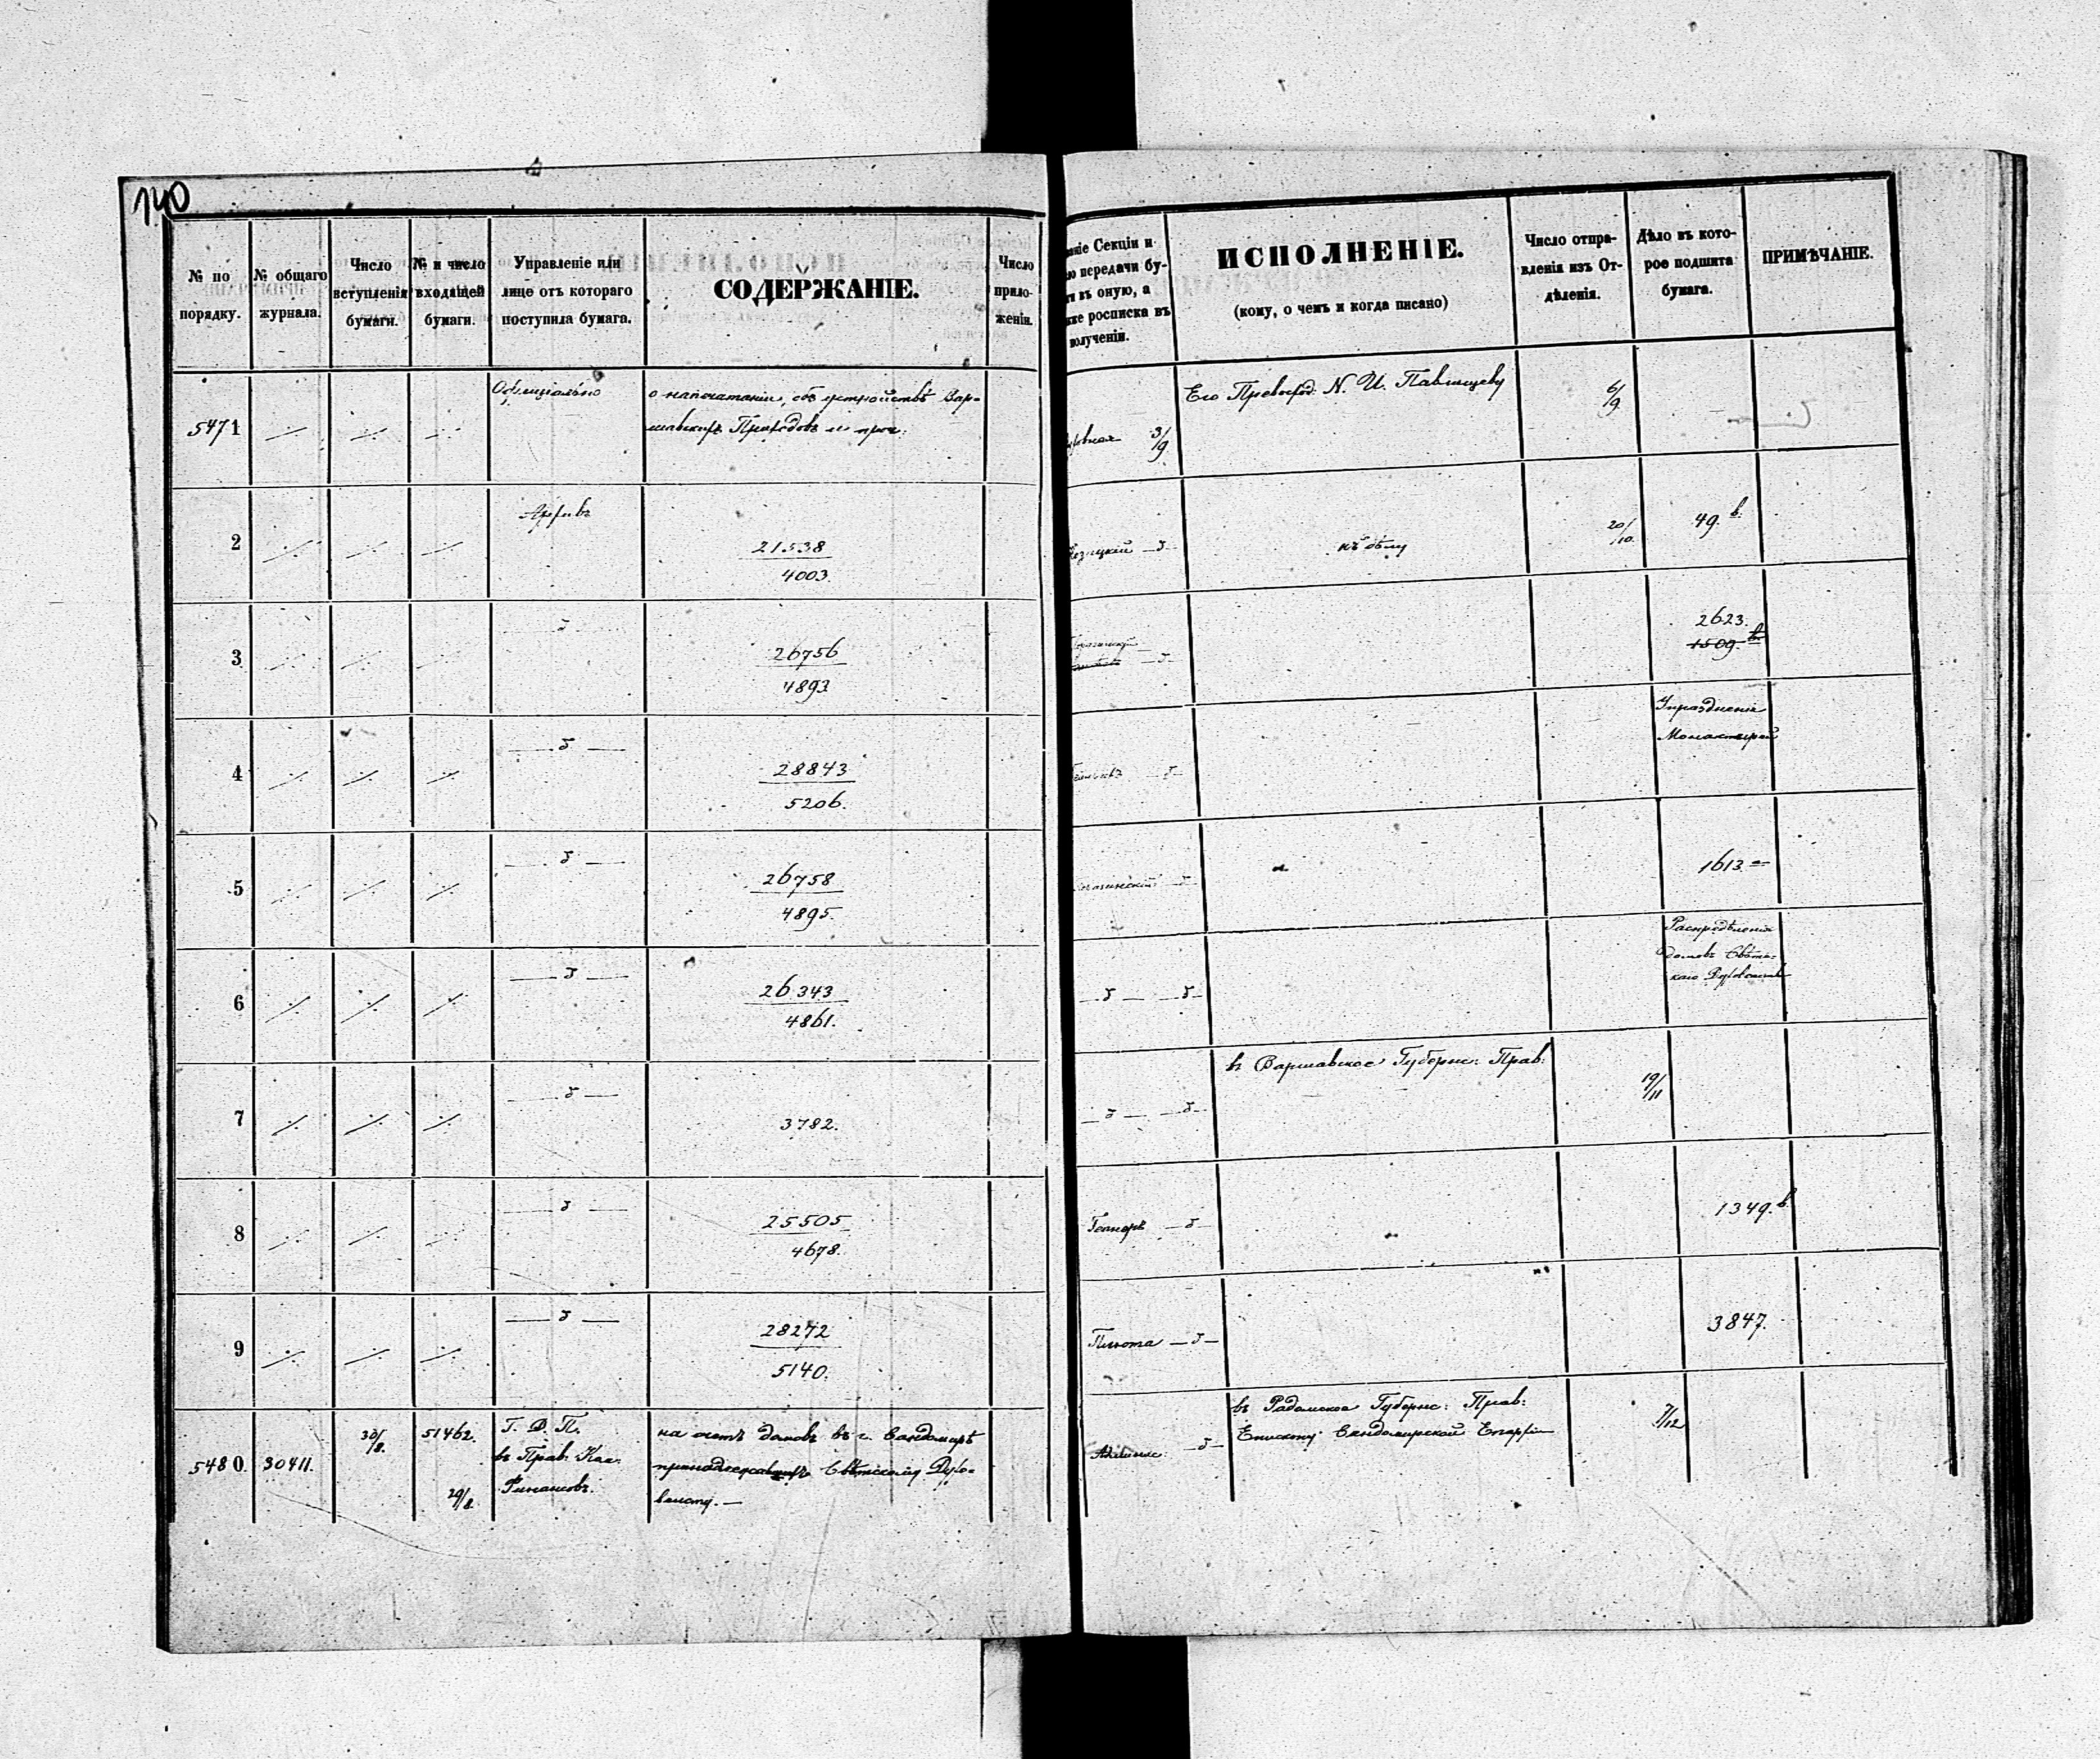 140
№ по порядку.
№ общаго журнала.
Число вступленія бумаги.
№ и число входящей бумаги.
Управленіе или лице отъ котораго поступила бумага.
СОДЕРЖАНІЕ.
Число прило- женія.
аніе Секціи и
передачи бу-
въ оную, а
же росписка въ
полученіи.
ИСПОЛНЕНІЕ.
(кому, о чемъ и когда писано)
Число отпра- вленія изъ От- дѣленія.
Дѣло въ кото- рое подшита бумага.
ПРИМѢЧАНІЕ.
5471 ./. ./. ./. Оффиціально о напечатаніи, объ устройствѣ Вар-
шавскихъ Приходовъ и проч:
3/9 Его Превосход: N. И. Павлищеву 6/9
2 ./. ./. ./. Архивъ 21538
4003.
къ дѣлу 20/10. 49. в.
3 ./. ./. ./. 26756
4893
2623.
1509. в.
4 ./. ./. ./. 28843
5206.
Упраздненія
Монастырей
5 ./. ./. ./. 26758
4895.
1613
6 ./. ./. ./. 26343
4861.
Распредѣленія
домовъ Свѣтс-
каго Духовенства
7 ./. ./. ./. 3782.
въ Варшавское Губернс: Прав: 19/11
8 ./. ./. ./. 25505
4678.
1349. в
9 ./. ./. ./. 28272
5140.
3847.
5480. 30411. 30/8. 51462. 29/8. Г. Д. П.
въ Прав. Ком.
Финансовъ.
на счетъ домовъ въ г. Сандомирѣ
принадлежавшихъ Свѣтскому Духо-
венству. —
въ Радомское Губернс: Прав:
Епископу Сандомирской Епархіи
7/12